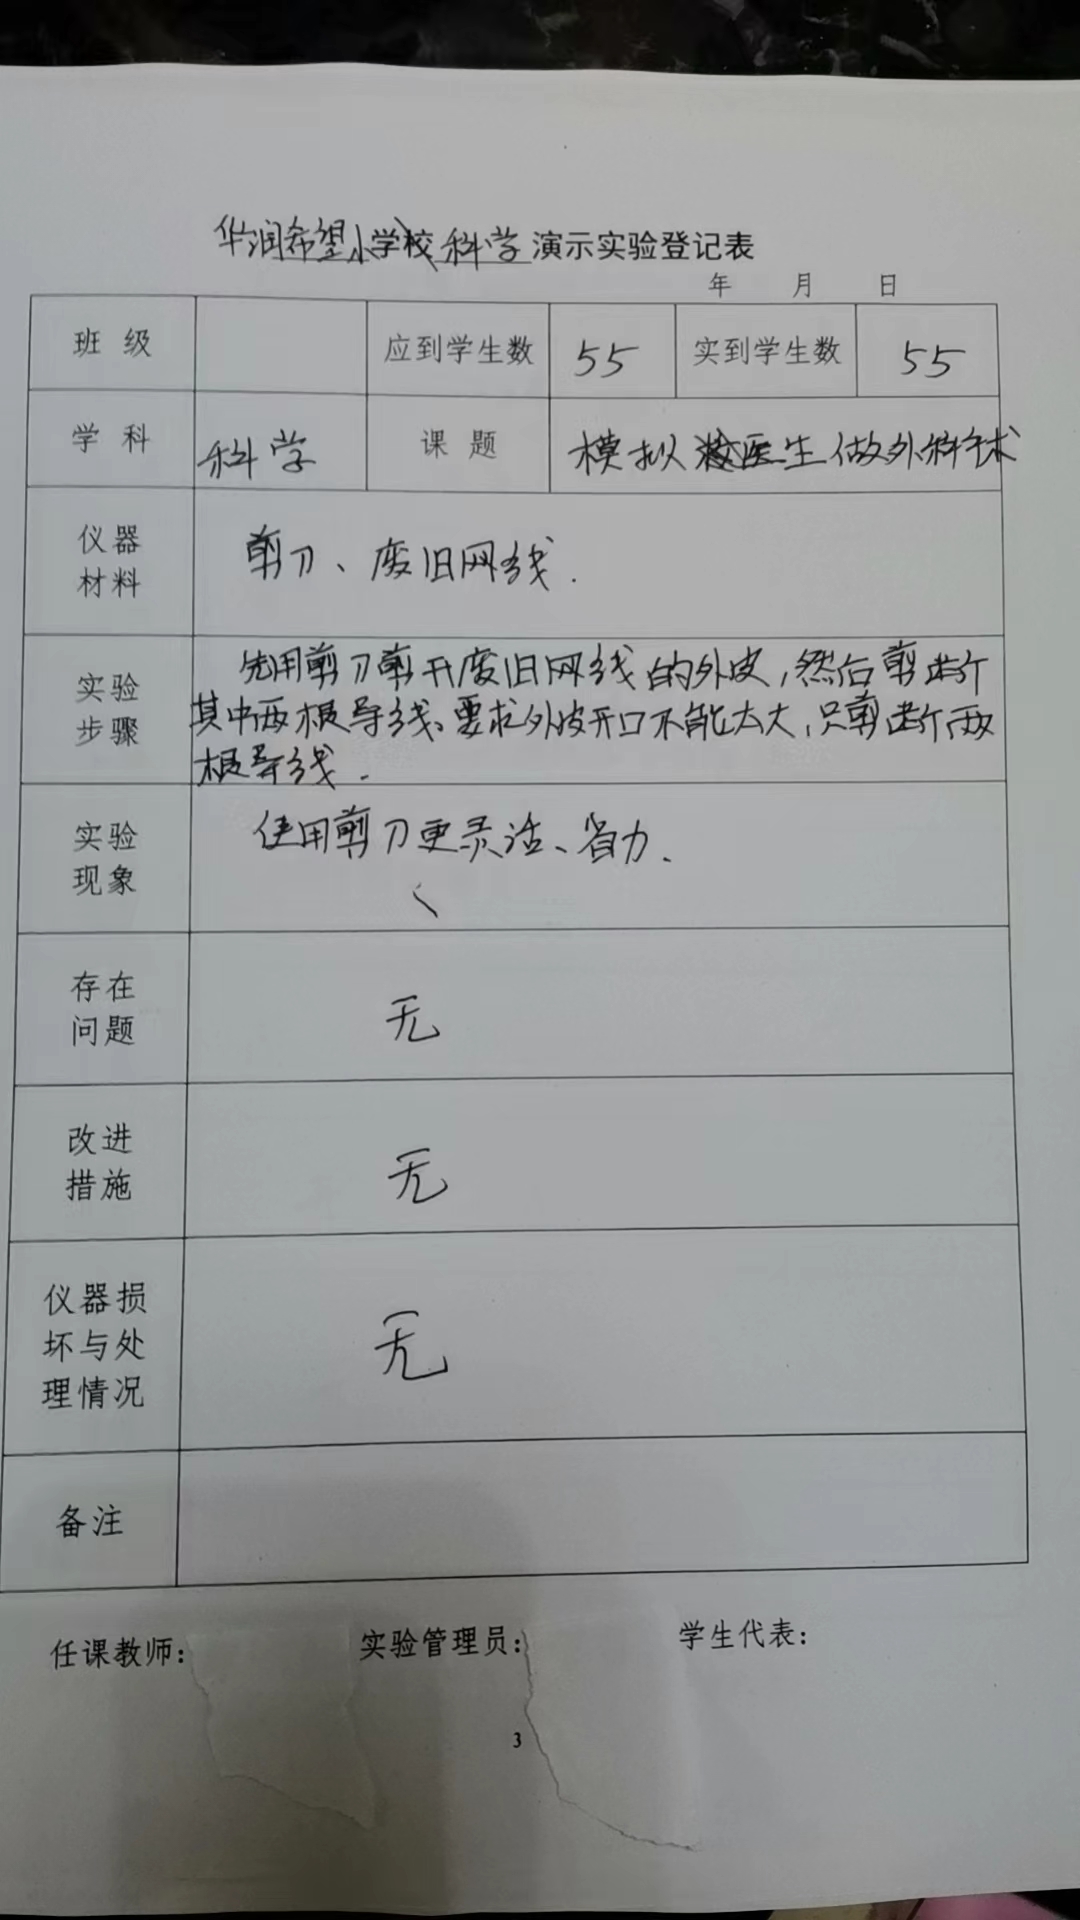 华润希望小学校科学演示实验登记表
年 月 日
班级 应到学生数 55 实到学生数 55
学科 科学 课题 模拟医生做外科手术
仪器
材料
剪刀、废旧网线.
实验
步骤
先用剪刀剪开废旧网线的外皮,然后剪断
其中两根导线、要求外皮开口不能太大,只剪断两
根导线.
实验
现象
使用剪刀更灵活、省力.
存在
问题
无
改进
措施
无
仪器损
坏与处
理情况
无
备注
任课教师: 实验管理员: 学生代表:
3